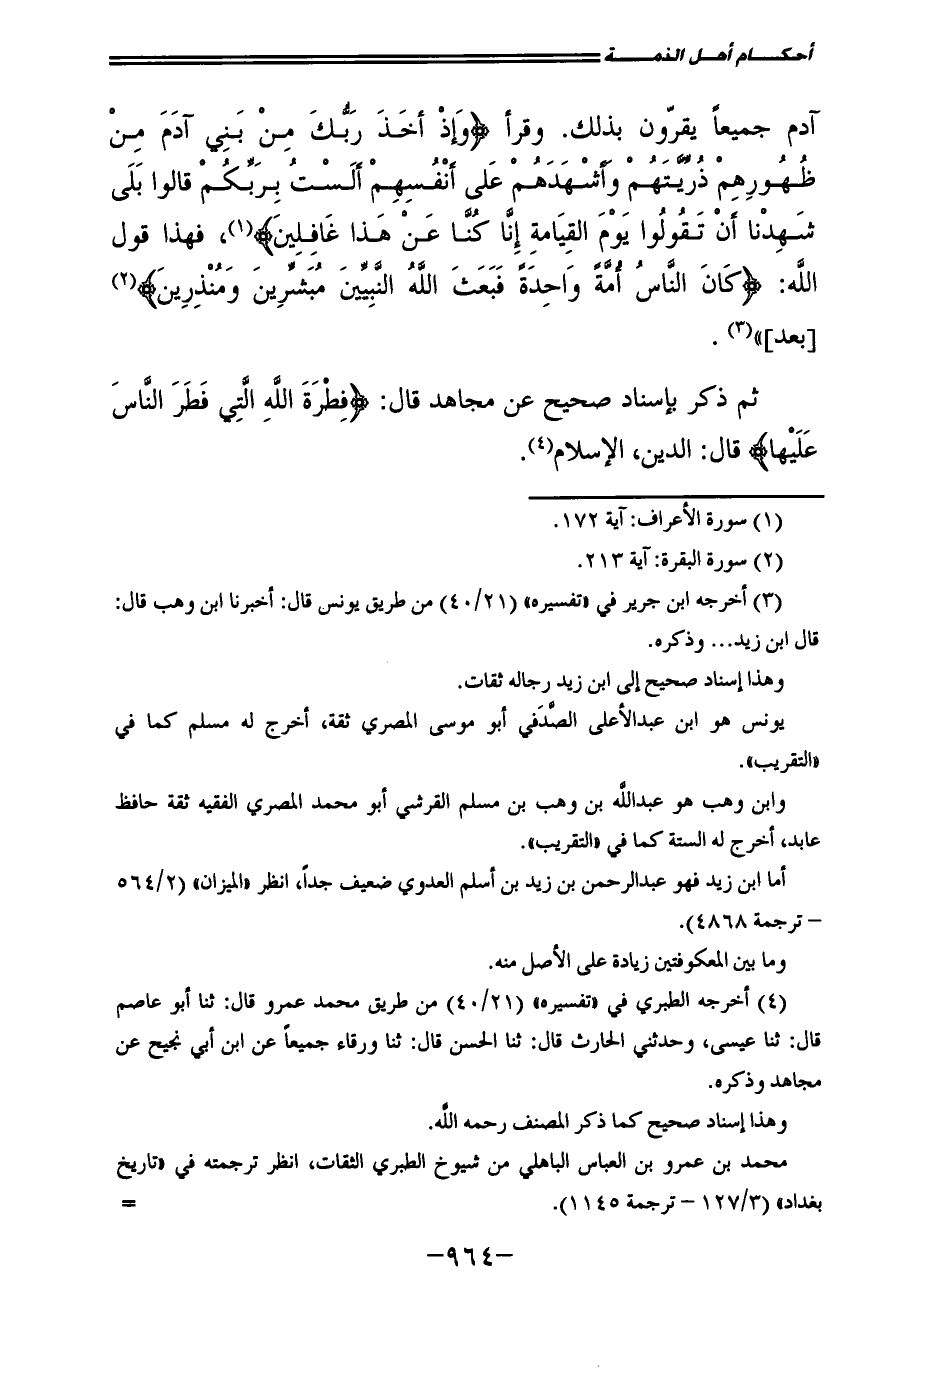 أحكـــام أهـل الذمـــة
آدم جميعاً يقرّون بذلك. وقرأ ﴿وَإِذْ أَخَذَ رَبُّكَ مِنْ بَنِي آدَمَ مِنْ
ظُهُورِهِمْ ذُرِّيَّتَهُمْ وَأَشْهَدَهُمْ عَلَى أَنْفُسِهِمْ أَلَسْتُ بِرَبِّكُمْ قالوا بَلَى
شَهِدْنا أَنْ تَقُولُوا يَوْمَ القِيَامةِ إِنَّا كُنَّا عَنْ هَذا غَافِلِينَ﴾(١)، فهذا قول
اللَّه: ﴿كَانَ النَّاسُ أُمَّةً وَاحِدَةً فَبَعَثَ اللَّهُ النَّبِيِّينَ مُبَشِّرِينَ وَمُنْذِرِينَ﴾(٢)
[بعد]»(٣).
ثم ذكر بإسناد صحيح عن مجاهد قال: ﴿فِطْرَةَ اللَّهِ الَّتِي فَطَرَ النَّاسَ
عَلَيْها﴾ قال: الدين، الإسلام(٤).
(١) سورة الأعراف: آية ١٧٢.
(٢) سورة البقرة: آية ٢١٣.
(٣) أخرجه ابن جرير في «تفسيره» (٤٠/٢١) من طريق يونس قال: أخبرنا ابن وهب قال:
قال ابن زيد... وذكره.
وهذا إسناد صحيح إلى ابن زيد رجاله ثقات.
يونس هو ابن عبدالأعلى الصَّدَفي أبو موسى المصري ثقة، أخرج له مسلم كما في
«التقريب».
وابن وهب هو عبداللَّه بن وهب بن مسلم القرشي أبو محمد المصري الفقيه ثقة حافظ
عابد، أخرج له الستة كما في «التقريب».
أما ابن زيد فهو عبدالرحمن بن زيد بن أسلم العدوي ضعيف جداً، انظر «الميزان» (٥٦٤/٢
– ترجمة ٤٨٦٨).
وما بين المعكوفتين زيادة على الأصل منه.
(٤) أخرجه الطبري في «تفسيره» (٤٠/٢١) من طريق محمد عمرو قال: ثنا أبو عاصم
قال: ثنا عيسى، وحدثني الحارث قال: ثنا الحسن قال: ثنا ورقاء جميعاً عن ابن أبي نجيح عن
مجاهد وذكره.
وهذا إسناد صحيح كما ذكر المصنف رحمه اللَّه.
محمد بن عمرو بن العباس الباهلي من شيوخ الطبري الثقات، انظر ترجمته في «تاريخ
بغداد» (١٢٧/٣ – ترجمة ١١٤٥). =
–٩٦٤–